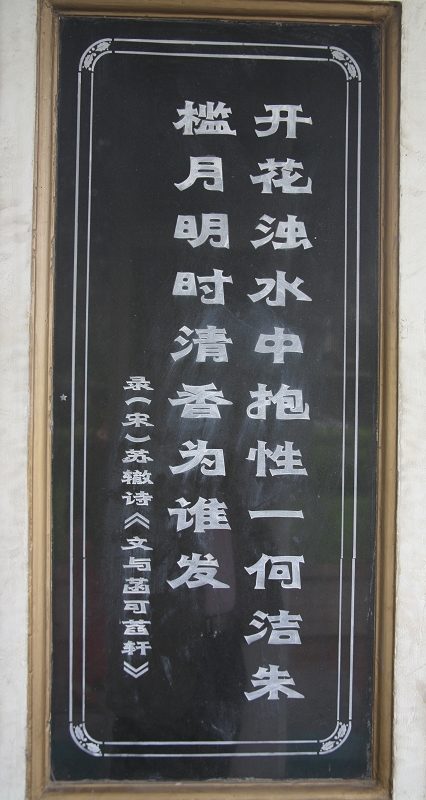 开花浊水中抱性一何洁朱
槛月明时清香为谁发
录(宋)苏辙诗《文与菡可萏轩》